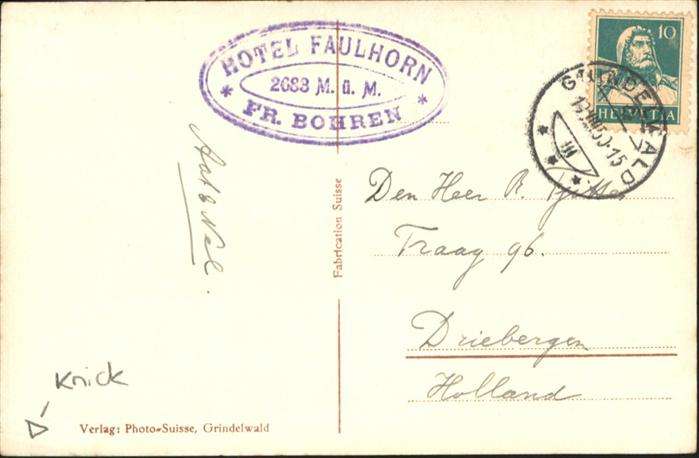 HOTEL FAULHORN
2683 M. ü. M.
* FR. BOHREN *
10
HELVETIA
GRINDELWALD
Aat & Nel.
Fabrication Suisse
Den Heer
Traay 96.
Driebergen
Holland
Knick
Verlag: Photo-Suisse, Grindelwald